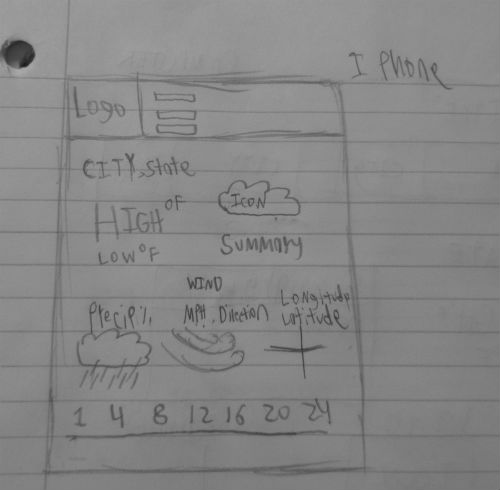 I Phone
Logo
CITY, state
HIGH °F
ICON
LOW °F
Summary
WIND
Precip %
MPH, Direction
Longitude
Latitude
1 4 8 12 16 20 24